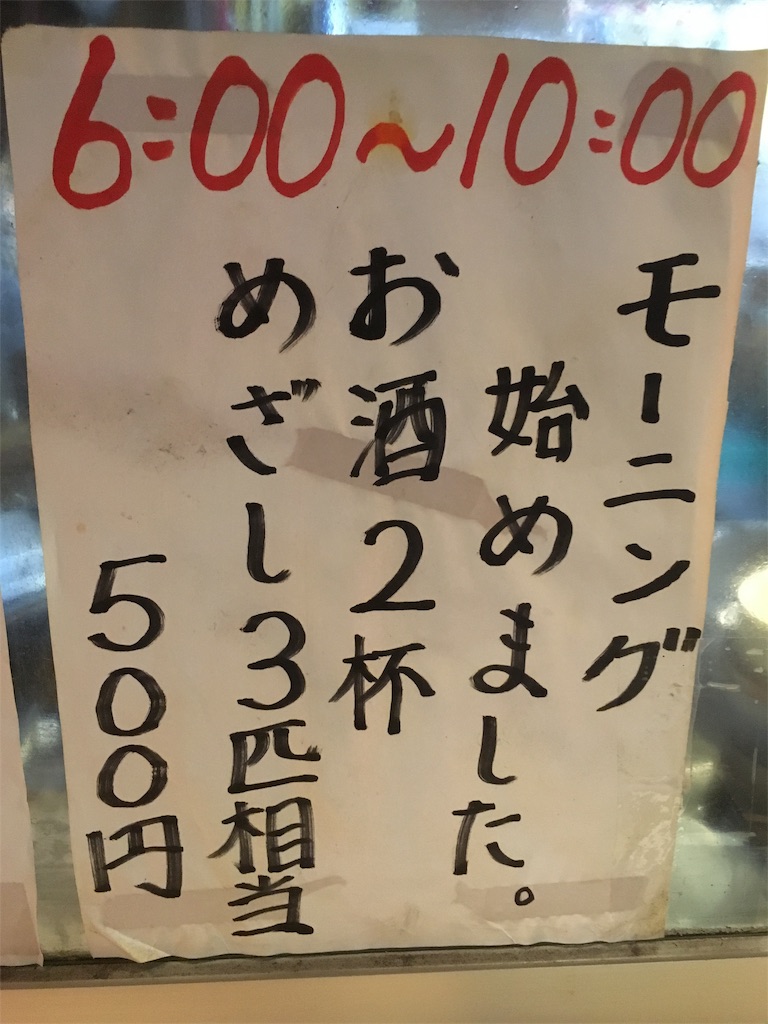 6:00～10:00
モーニング
始めました。
お酒2杯
めざし3匹相当
500円